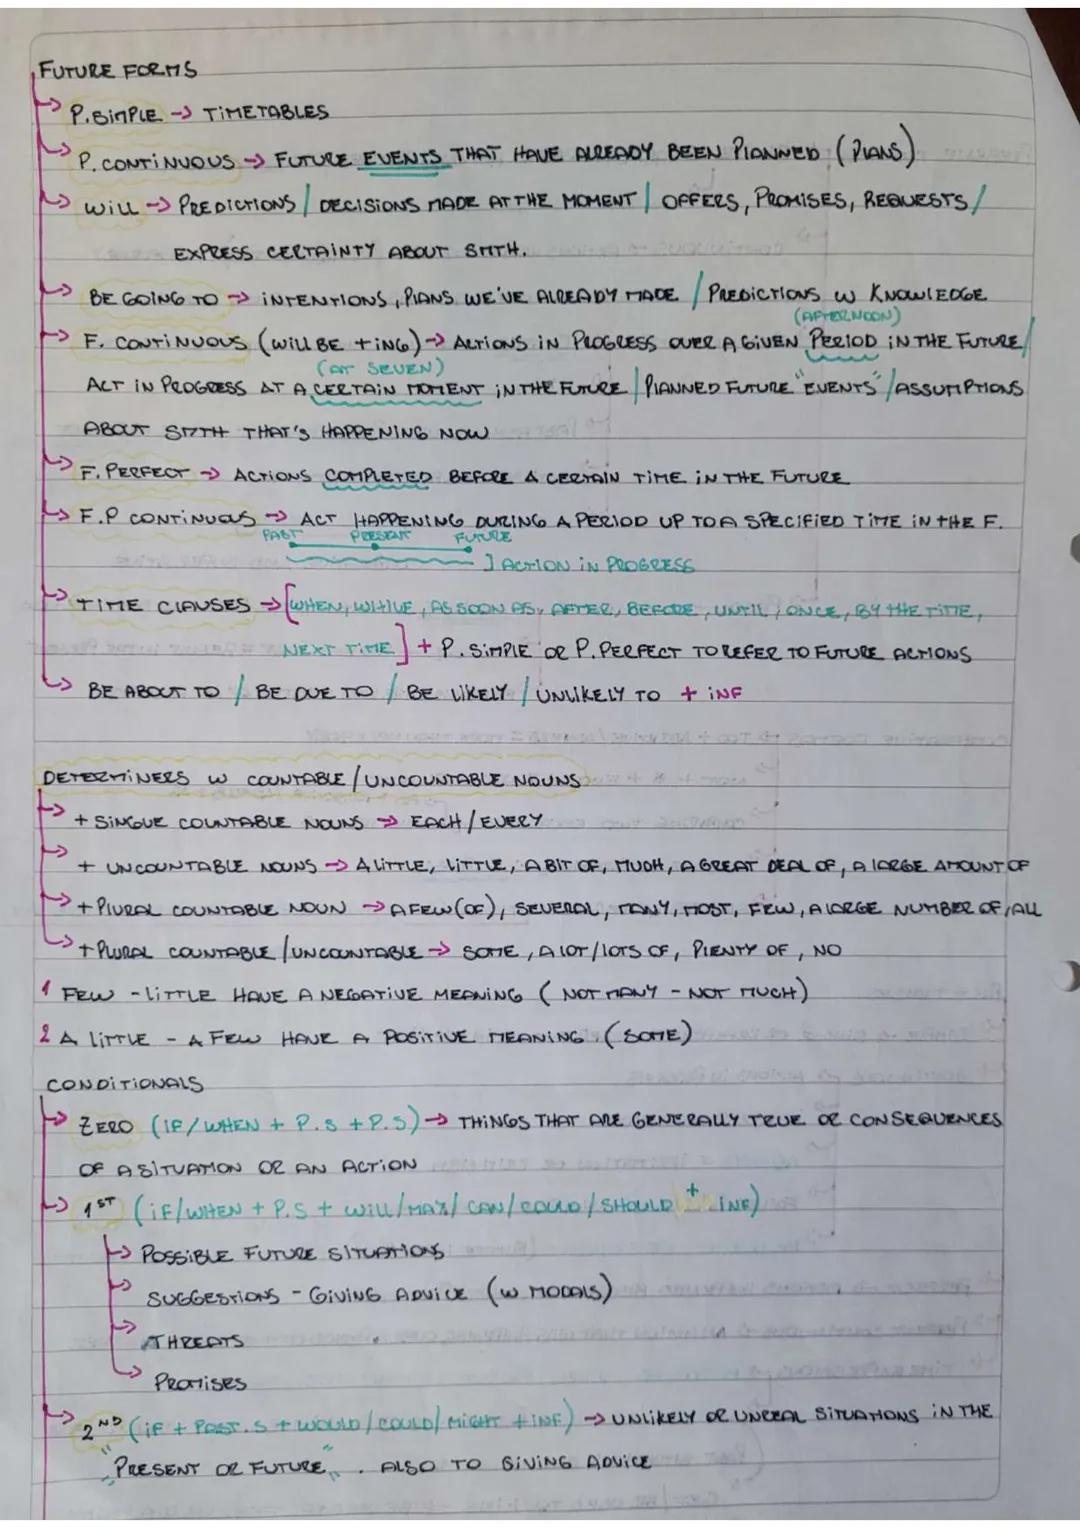 FUTURE FORMS
P. SIMPLE → TIMETABLES
P. CONTINUOUS → FUTURE EVENTS THAT HAVE ALREADY BEEN PLANNED (PLANS)
WILL → PREDICTIONS / DECISIONS MADE AT THE MOMENT / OFFERS, PROMISES, REQUESTS /
EXPRESS CERTAINTY ABOUT SMTH.
BE GOING TO → INTENTIONS, PLANS WE'VE ALREADY MADE / PREDICTIONS W KNOWLEDGE
(AFTERNOON)
F. CONTINUOUS (WILL BE +ING) → ACTIONS IN PROGRESS OVER A GIVEN PERIOD IN THE FUTURE/
(AT SEVEN)
ACT IN PROGRESS AT A CERTAIN MOMENT IN THE FUTURE / PLANNED FUTURE "EVENTS" / ASSUMPTIONS
ABOUT SMTH THAT'S HAPPENING NOW
F. PERFECT → ACTIONS COMPLETED BEFORE A CERTAIN TIME IN THE FUTURE
F.P CONTINUOUS → ACT HAPPENING DURING A PERIOD UP TO A SPECIFIED TIME IN THE F.
PAST PRESENT FUTURE
] ACTION IN PROGRESS
TIME CLAUSES → [WHEN, WHILE, AS SOON AS, AFTER, BEFORE, UNTIL, ONCE, BY THE TIME,
NEXT TIME] + P. SIMPLE OR P. PERFECT TO REFER TO FUTURE ACTIONS
BE ABOUT TO / BE DUE TO / BE LIKELY / UNLIKELY TO + INF
DETERMINERS W COUNTABLE/UNCOUNTABLE NOUNS
+ SINGLE COUNTABLE NOUNS → EACH/EVERY
+ UNCOUNTABLE NOUNS → A LITTLE, LITTLE, A BIT OF, MUCH, A GREAT DEAL OF, A LARGE AMOUNT OF
+ PLURAL COUNTABLE NOUN → A FEW (OF), SEVERAL, MANY, MOST, FEW, A LARGE NUMBER OF, ALL
+ PLURAL COUNTABLE / UNCOUNTABLE → SOME, A LOT/LOTS OF, PLENTY OF, NO
1 FEW - LITTLE HAVE A NEGATIVE MEANING (NOT MANY - NOT MUCH)
2 A LITTLE - A FEW HAVE A POSITIVE MEANING. (SOME)
CONDITIONALS
ZERO (IF/WHEN + P.S + P.S) → THINGS THAT ARE GENERALLY TRUE OR CONSEQUENCES
OF A SITUATION OR AN ACTION
1ST (IF/WHEN + P.S + WILL/MAY/CAN/COULD/SHOULD + INF)
POSSIBLE FUTURE SITUATIONS
SUGGESTIONS - GIVING ADVICE (W MODALS)
THREATS
PROMISES
2ND (IF + PAST.S + WOULD/COULD/MIGHT + INF) → UNLIKELY OR UNREAL SITUATIONS IN THE
"PRESENT OR FUTURE". ALSO TO GIVING ADVICE